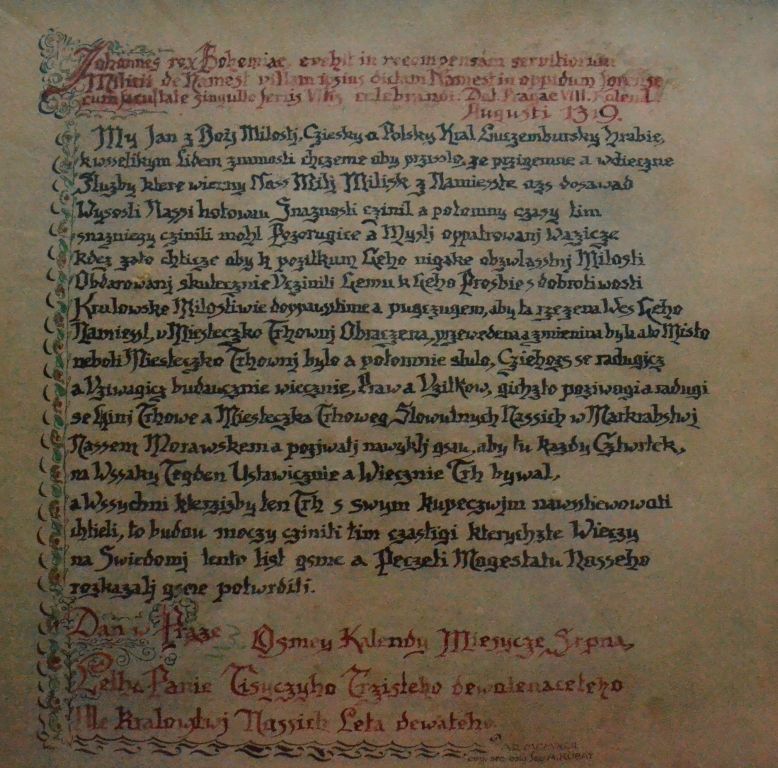 Johannes rex Bohemiae, evehit in recompensam servitiorum
Milicii de Namest villam ipsius dictam Namest in oppidum forense
cum facultate singulis feriis Vtis celebrandi. Dat. Pragae VIII. Kalend.
Augusti 1319.
My Jan z Boži Milostj, Cziesky a Polsky Kral Luczembursky hrabie,
kwsselikym Lidem znamosti chczeme aby przisslo, že przigemne a wdieczne
Služby ktere wierny Nass Milij Milisk z Namiesste azs dosawad
Wysosti Nassi hotowau Snaznosti czinil a potomny czasy tim
snazniegy cziniti mohl Pozorugice a Myslj oppatrowanj Wazicze
kdez zato chticze aby k pozitkum Geho nigake obzwlasstnj Milosti
Obdarowanj skutecznie Vczinili Gemu k Geho Prosbie s dobrotiwosti
Kralowske Milostiwie doppaustime a pugczugem, aby ta rzeczena Wes Geho
Namiesst, v Miesteczko Trhownj Obraczena, przewedena a zmienina byla ato Misto
neboli Miesteczko Trhownj bylo a potomnie slulo, Cziehozs se radugicz
a Vziwagicz budaucznie wiecznie, Praw a Vzitkow, gichzto poziwagi a radugi
se Ginj Trhowe a Miesteczka Trhoweg Slowutnych Nassich w Markrabstwj
Nassem Morawskem a pozjwatj nawyklj gsau, aby tu kazdy Cztwrtek,
na Wssaky Tegden Ustawicznie a Wiecznie Trh bywal,
a Wssychni kterzizby ten Trh s swym kupeczwjm nawsstiewowati
chtieli, to budou moczy cziniti tim czastigi kterychzte Wierzy
na Swiedomj tento list gsme a Peczeti Magestatu Nasseho
rozkazalj gsme potwrditi.
Dan w Praze Osmey Kalendy Miesycze Srpna,
Letha Panie Tisyczyho Trzisteho dewatenacteho
We Kralowstwj Nassich Leta dewateho.